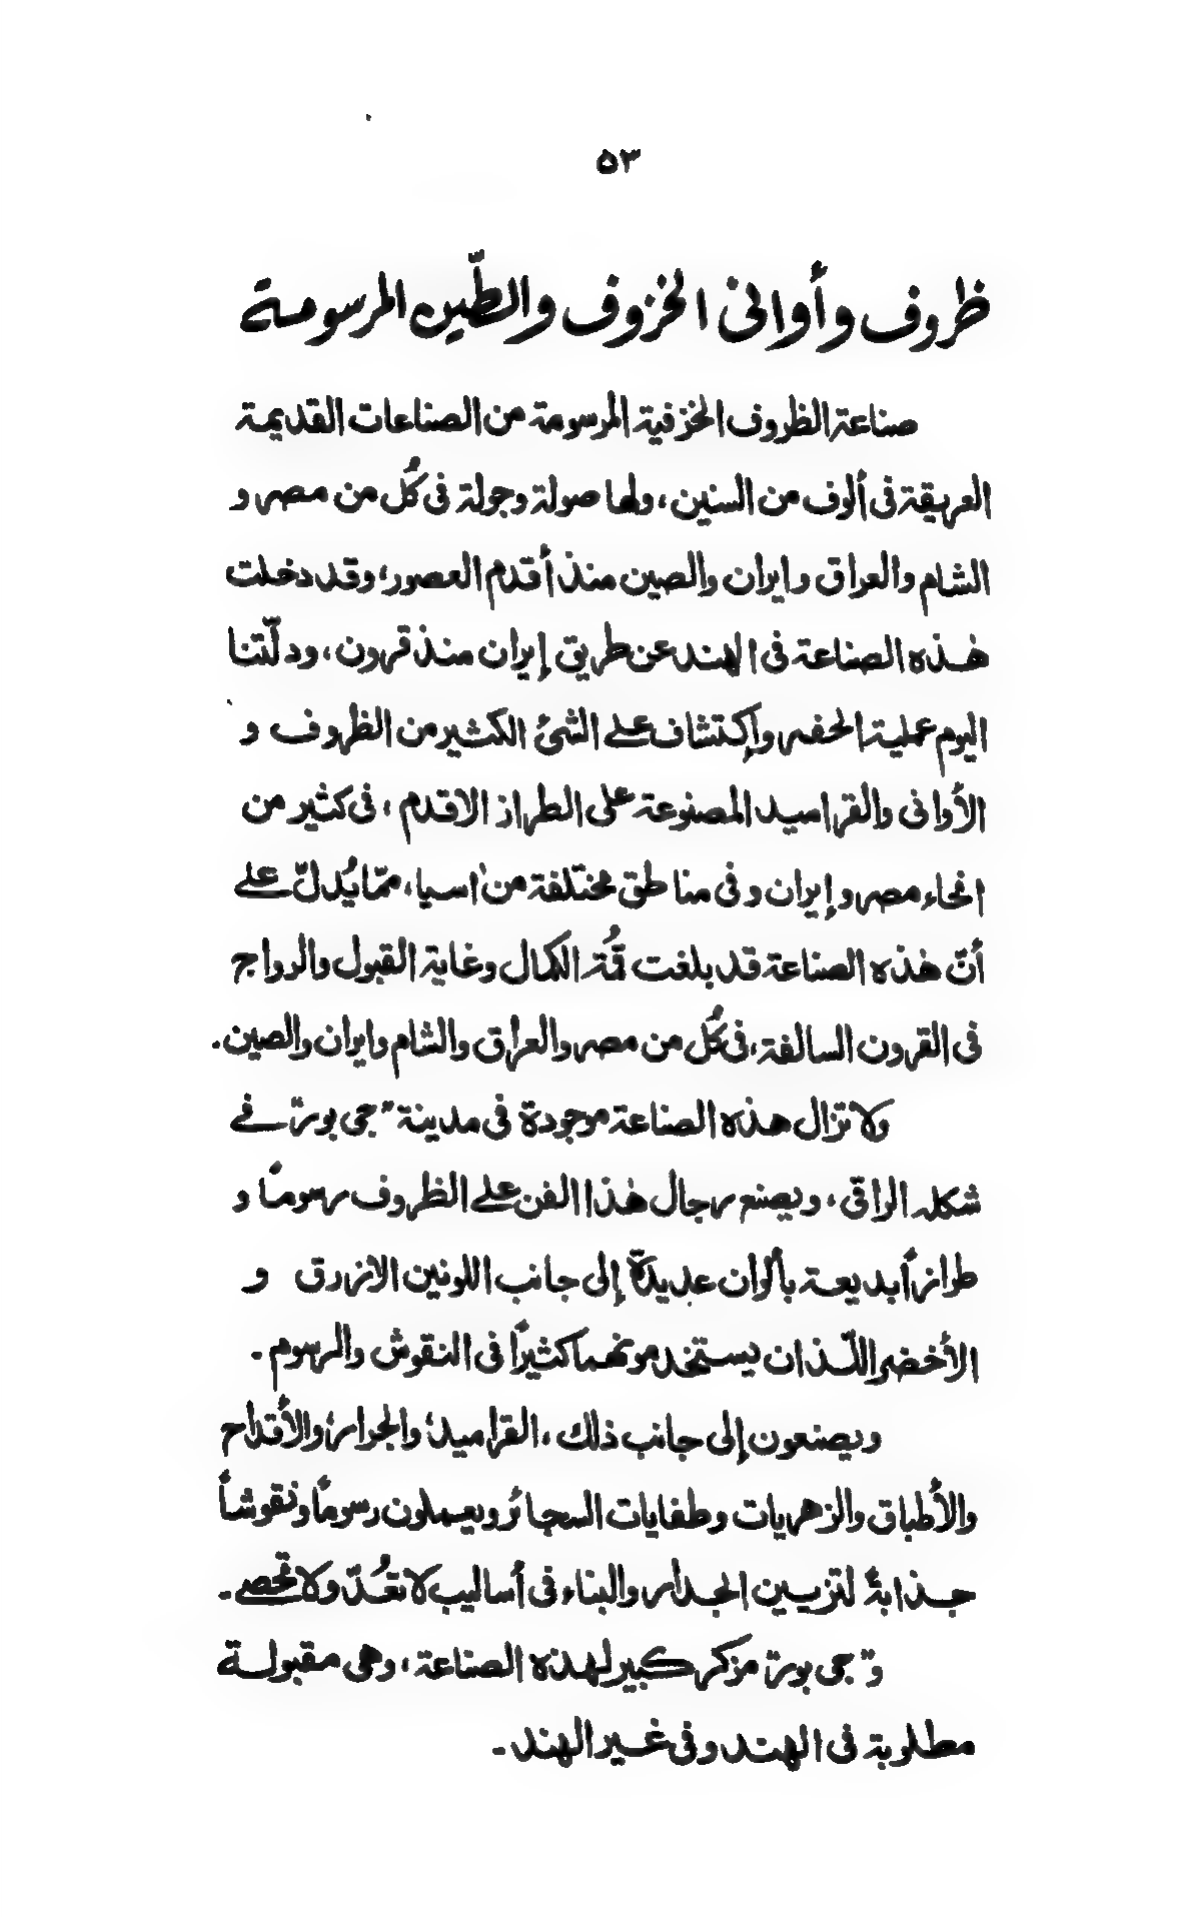 ٥٣
ظروف وأوانى الخزوف والطّين المرسومة
صناعة الظروف الخزفية المرسومة من الصناعات القديمة
العريقة فى ألوف من السنين، ولها صولة وجولة فى كُل من مصر و
الشام والعراق وايران والصين منذ أقدم العصور؛ وقد دخلت
هٰذه الصناعة فى الهند عن طريق إيران منذ قرون، ودلّتنا
اليوم عملية الحفر وإكتشاف على الشئ الكثير من الظروف و
الأوانى والقراميد المصنوعة على الطراز الاقدم، فى كثير من
انحاء مصر وإيران وفى مناطق مختلفة من اٰسيا، ممّا يُدلّ على
أنّ هٰذه الصناعة قد بلغت قمُة الكمال وغاية القبول والرواج
فى القرون السالفة، فى كُل من مصر والعراق والشام وايران والصين.
ولا تزال هذه الصناعة موجودة فى مدينة "جى بور" فى
شكله الراقى، ويصنع رجال هٰذا الفن على الظروف رسوماً و
طرازاً بديعة بألوان عديدة إلى جانب اللونين الازرق و
الأخضر اللّذان يستخدمونهما كثيراً فى النقوش والرسوم.
ويصنعون إلى جانب ذلك، القراميد؛ والجرار؛ والأقداح
والأطباق والزهريات وطفايات السجائر ويعملون رسوماً ونقوشاً
جذابةً لتزيين الجدار والبناء فى أساليب لا تعُدّ ولا تحصى.
و"جى بور" مزكر كبير لهذه الصناعة، وهى مقبولة
مطلوبة فى الهند وفى غير الهند.